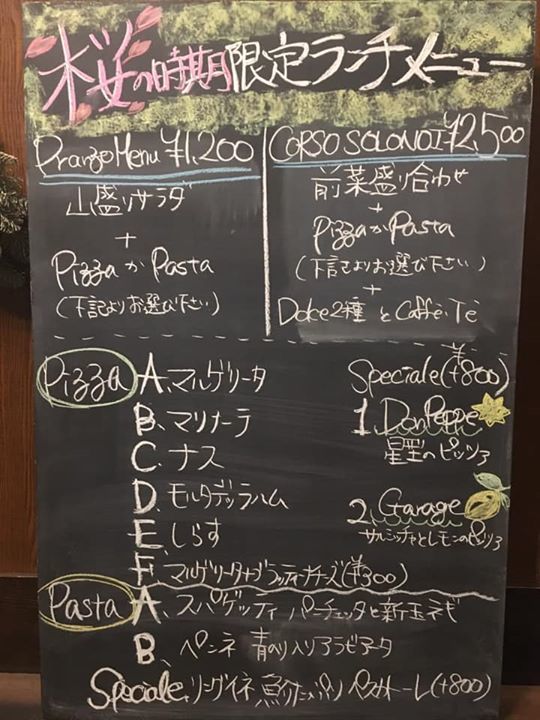 桜の時期限定ランチメニュー
Pranzo Menu ¥1,200
山盛りサラダ
+
Pizza か Pasta
(下記よりお選び下さい)
CORSO SOLO NOI ¥2,500
前菜盛り合わせ
+
Pizza か Pasta
(下記よりお選び下さい)
+
Dolce2種 と Caffè・Tè
Pizza
A、マルゲリータ
B、マリナーラ
C、ナス
D、モルタデッラハム
E、しらす
F、マルゲリータ+ブラッティーナチーズ(¥300)
Speciale(+¥800)
1、Don Peppe
星型のピッツァ
2、Garage
サルシッチャとレモンのピッツァ
Pasta
A、スパゲッティ パンチェッタと新玉ネギ
B、ペンネ 青のり入りアラビアータ
Speciale、リングイネ 魚介 ペスカトーレ(+800)